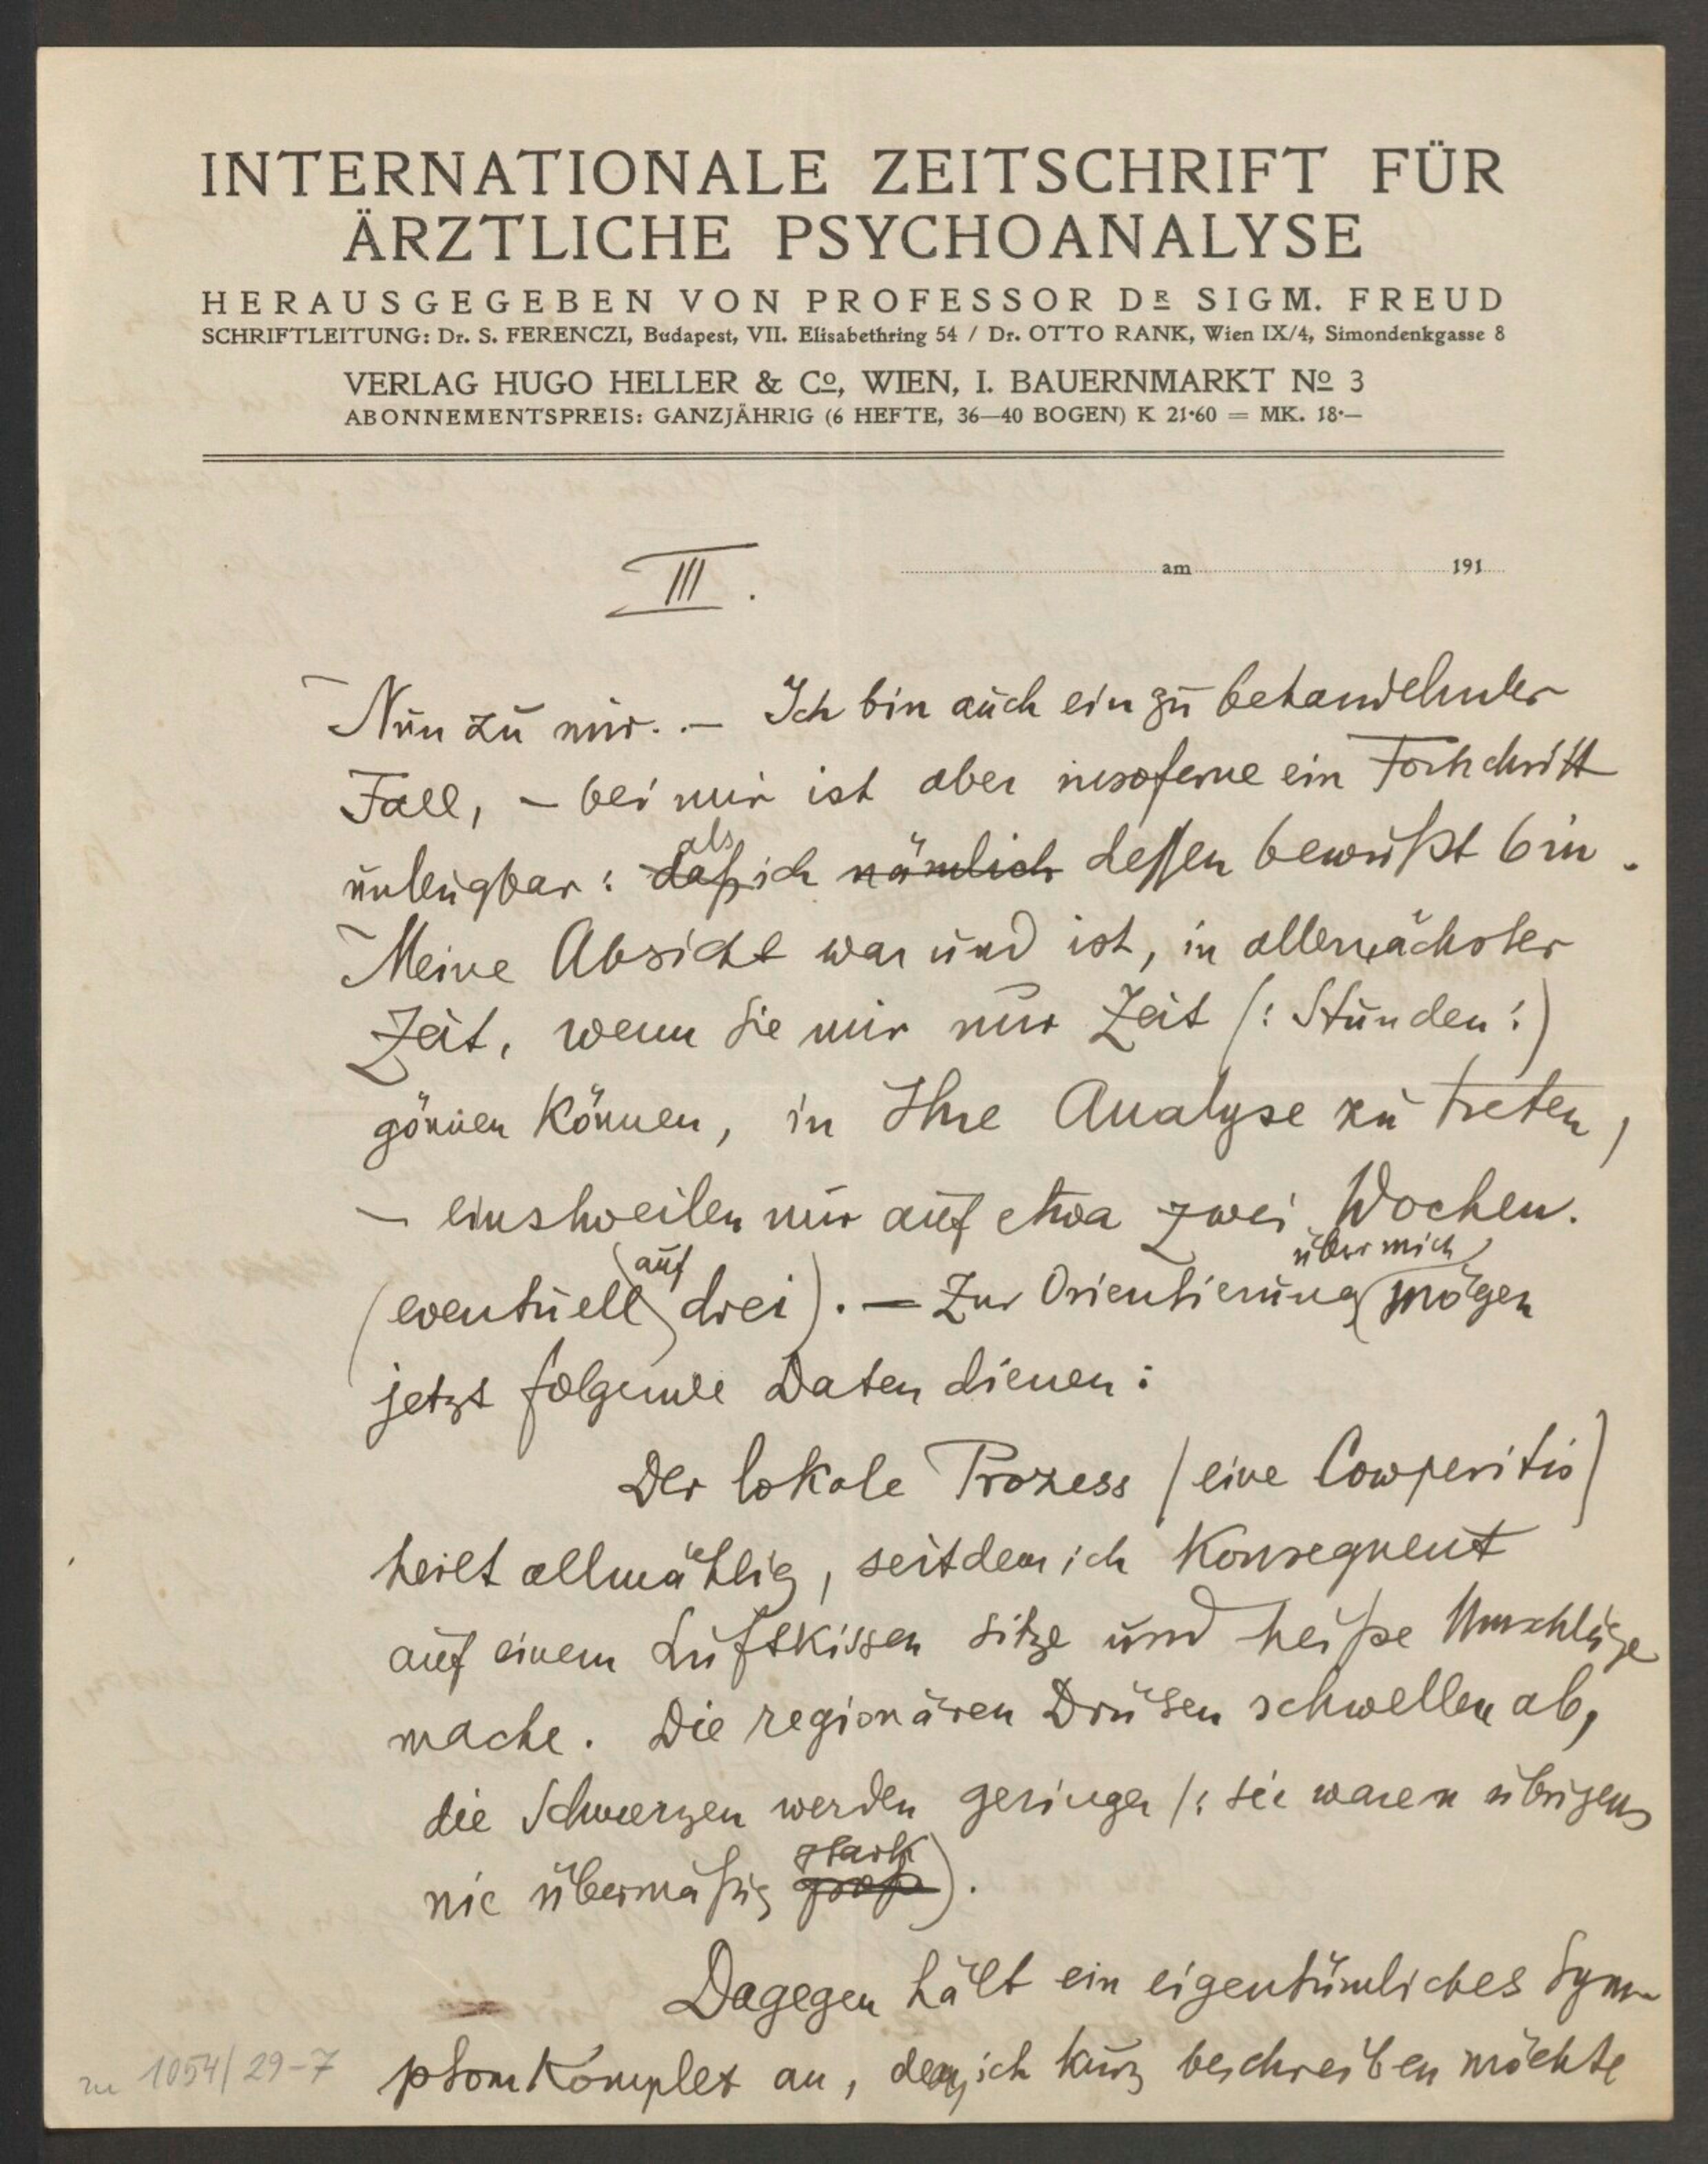 INTERNATIONALE ZEITSCHRIFT FÜR
ÄRZTLICHE PSYCHOANALYSE
HERAUSGEGEBEN VON PROFESSOR DR SIGM. FREUD
SCHRIFTLEITUNG: Dr. S. FERENCZI, Budapest, VII. Elisabethring 54 / Dr. OTTO RANK, Wien IX/4, Simondenkgasse 8
VERLAG HUGO HELLER & Co, WIEN, I. BAUERNMARKT No 3
ABONNEMENTSPREIS: GANZJÄHRIG (6 HEFTE, 36—40 BOGEN) K 21·60 = MK. 18·—
III. am 191
Nun zu mir. – Ich bin auch ein zu behandelnder
Fall, – bei mir ist aber insoferne ein Fortschritt
unleugbar: daß als ich nämlich dessen bewußt bin.
Meine Absicht war und ist, in allernächster
Zeit, wenn Sie mir nur Zeit (: Stunden :)
gönnen können, in Ihre Analyse zu treten,
– einstweilen nur auf etwa zwei Wochen.
(eventuell auf drei). – Zur Orientierung über mich mögen
jetzt folgende Daten dienen:
Der lokale Prozess (eine Cowperitis)
heilt allmählig, seitdem ich konsequent
auf einem Luftkissen sitze und heiße Umschläge
mache. Die regionären Drüsen schwellen ab,
die Schmerzen werden geringer (: sie waren übrigens
nie übermäßig groß stark).
Dagegen hält ein eigentümliches Sym-
ptomkomplex an, den ich kurz beschreiben möchte
zu 1054/29-7